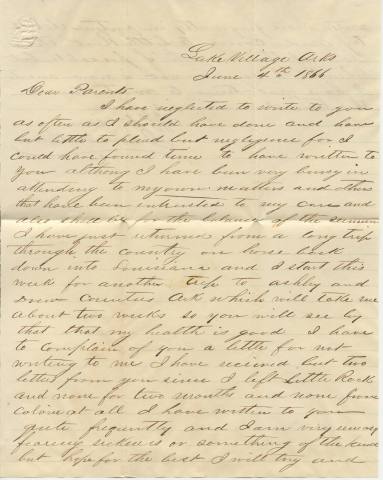 Lake Village Arks
June 4th 1866
Dear Parents
I have neglected to write to you
as often as I should have done and have
but little to plead but negligence for I
could have found time to have written to
you althoug I have been very busy in
attending to my own matters and others
that have been intrusted to my care and
also shall be for the balance of the summer
I have just returned from a long trip
through the country on horse back
down into Louisiana and I start this
week for another trip to Ashley and
Drew Counties Ark which will take me
about two weeks so you will see by
that that my health is good I have
to complain of you a little for not
writing to me I have recieved but two
letters from you since I left Little Rock
and none for two months and none from
at all I have written to you
quite frequently and I am very uneasy
fearing sickness or something of the kind
but hope for the best I will try and